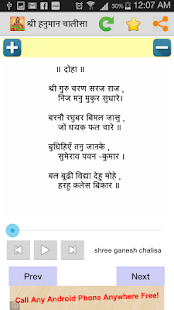 12:07 AM
श्री हनुमान चालीसा
॥ दोहा ॥
श्री गुरु चरण सरज राज ,
निज मनु मुकुर सुधारे।
बरनौ रघुबर बिमल जासु ,
जो धयक फल चारे ।
बुधिहिएँ तनु जानके ,
सुमेराव पवन -कुमार ।
बल बूढी विद्या देहु मोहे ,
हरहु कलेस बिकार ॥
shree ganesh chalisa
Prev
Next
Call Any Android Phone Anywhere Free!